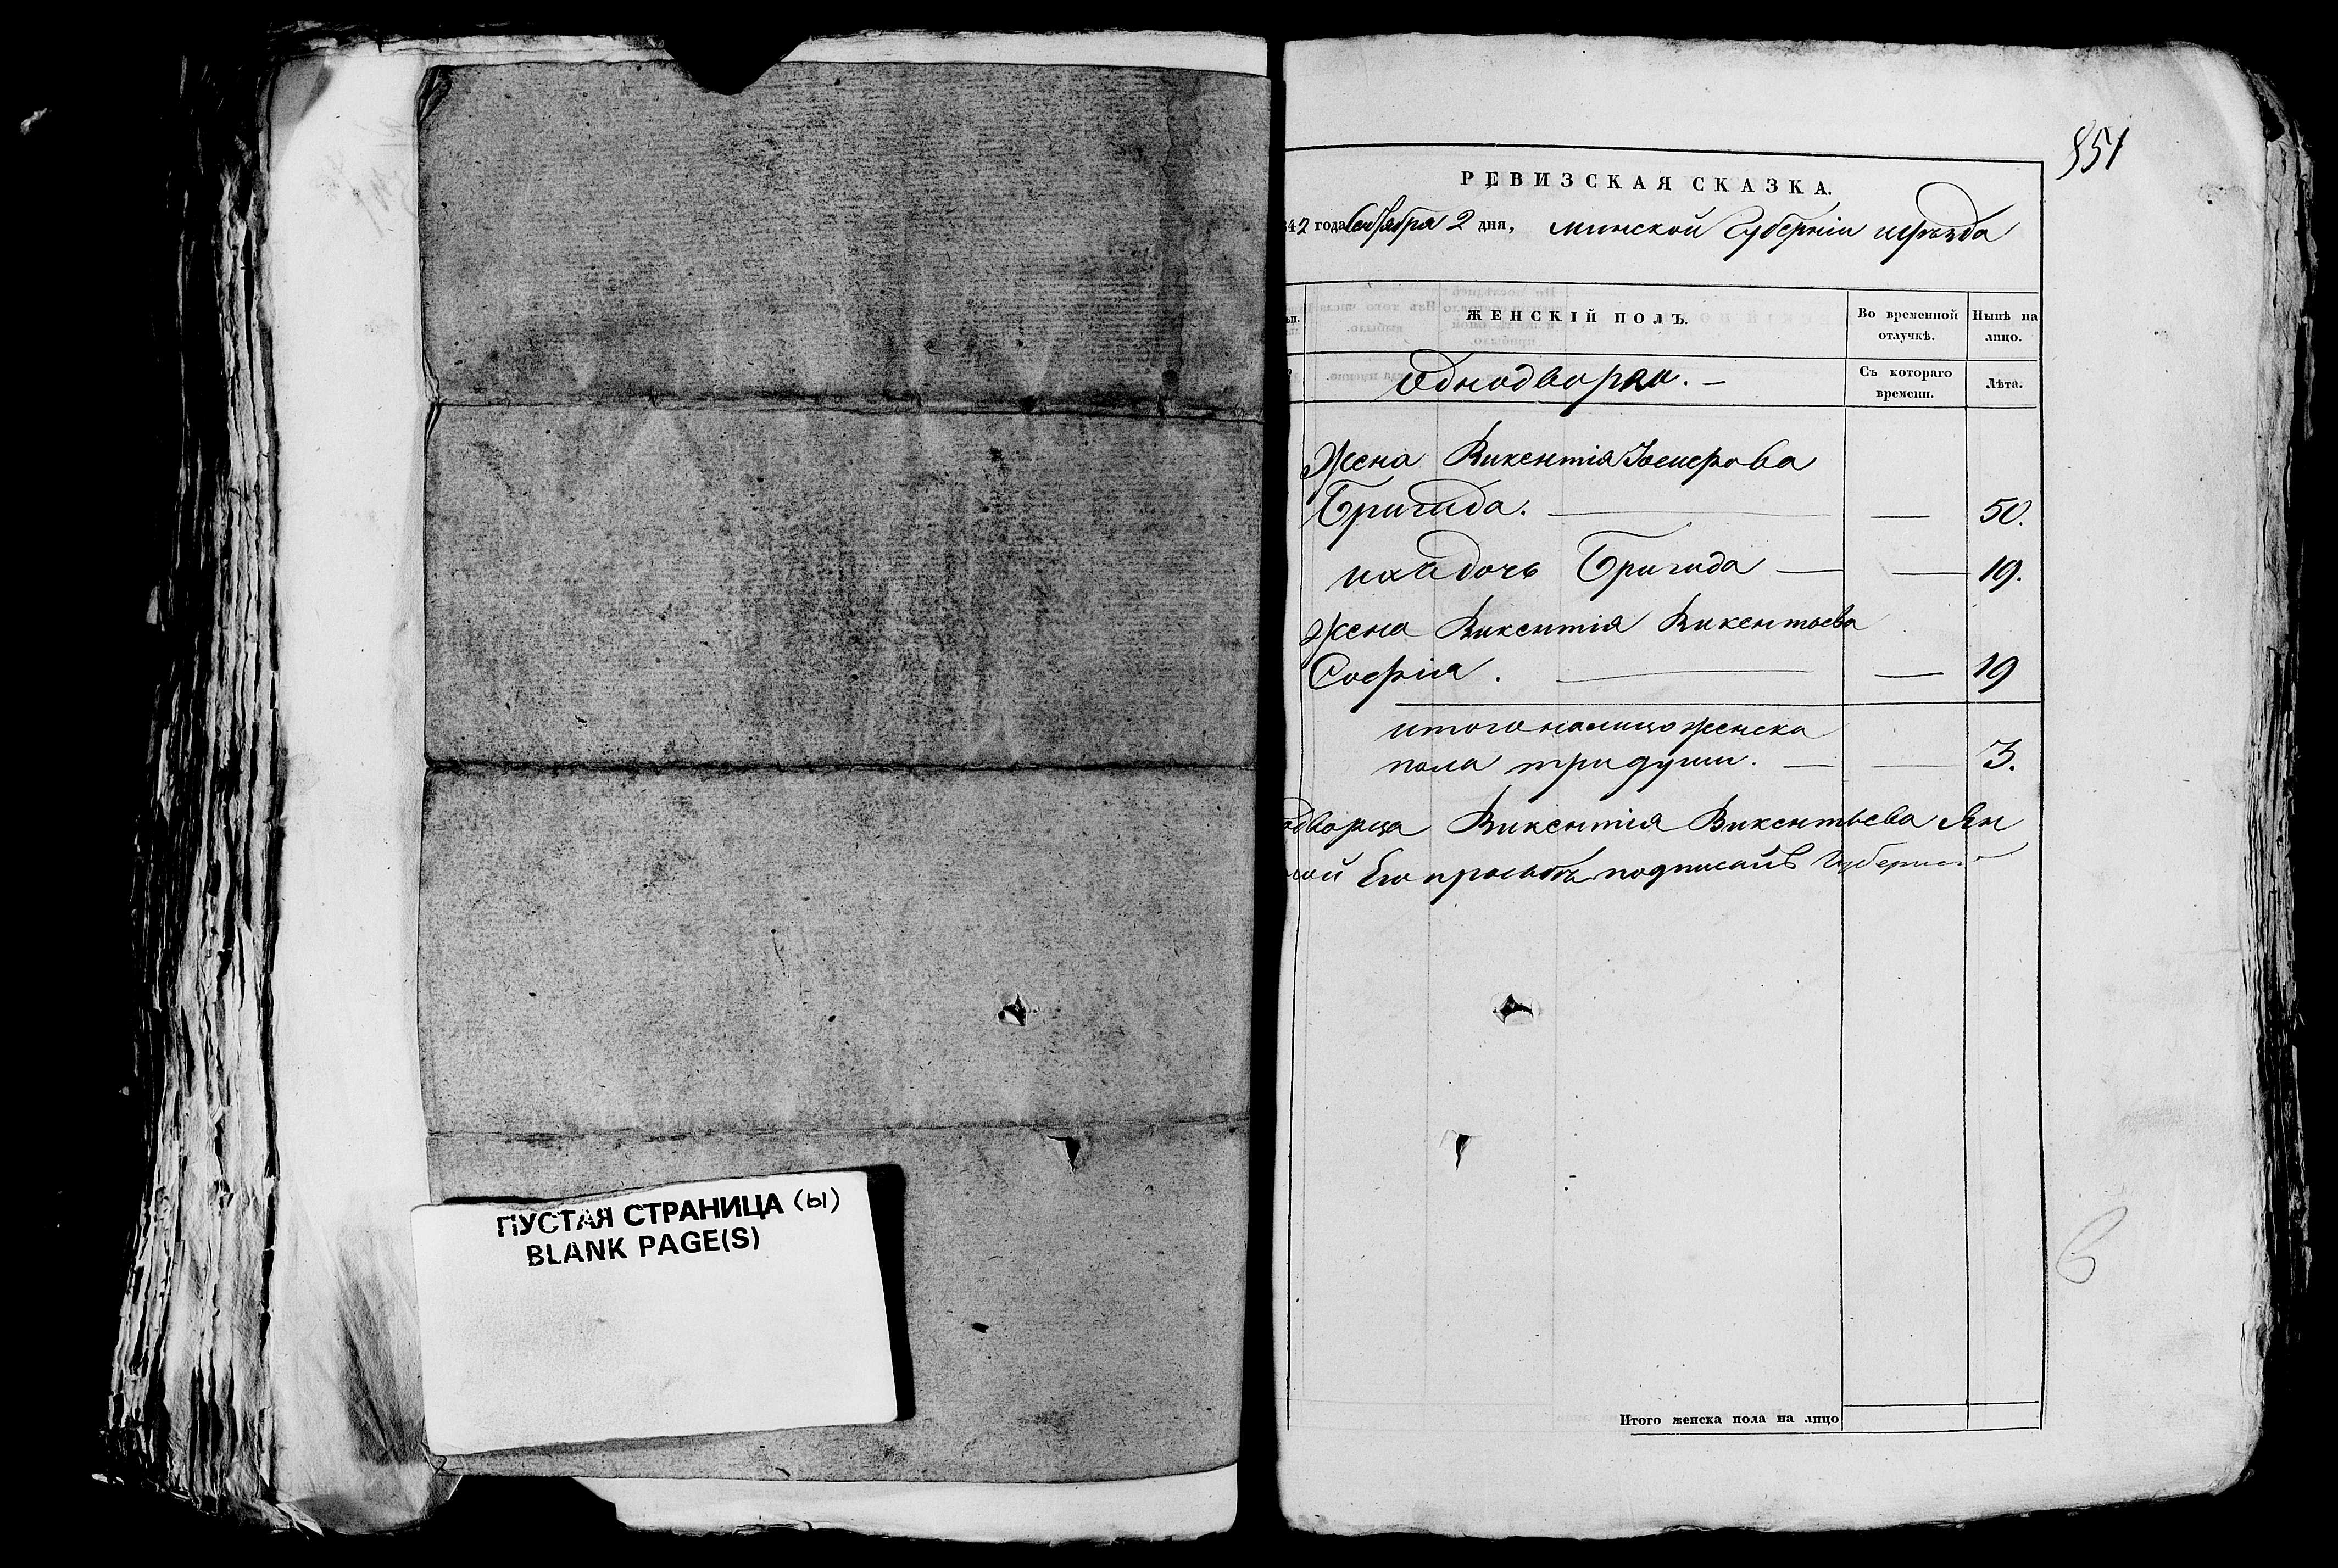 ПУСТАЯ СТРАНИЦА (ы)
BLANK PAGE(S)
851
РЕВИЗСКАЯ СКАЗКА.
842 года Сентября 2 дня, Минской Губерніи иуѣзда
ЖЕНСКІЙ ПОЛЪ.
Во временной отлучкѣ.
Нынѣ на лицо.
Однодворцы. —
Съ котораго времени.
Лѣта.
Жена Викентія
Бригида. — — 50.
ихъ дочь Бригида — — 19.
Жена Викентія Викентьева
Софія. — — 19
итого налицо женска
пола три души. — — 3.
одворца Викентія Викентьева Ян
Его прозьбѣ подписалъ Губернс
Итого женска пола на лицо